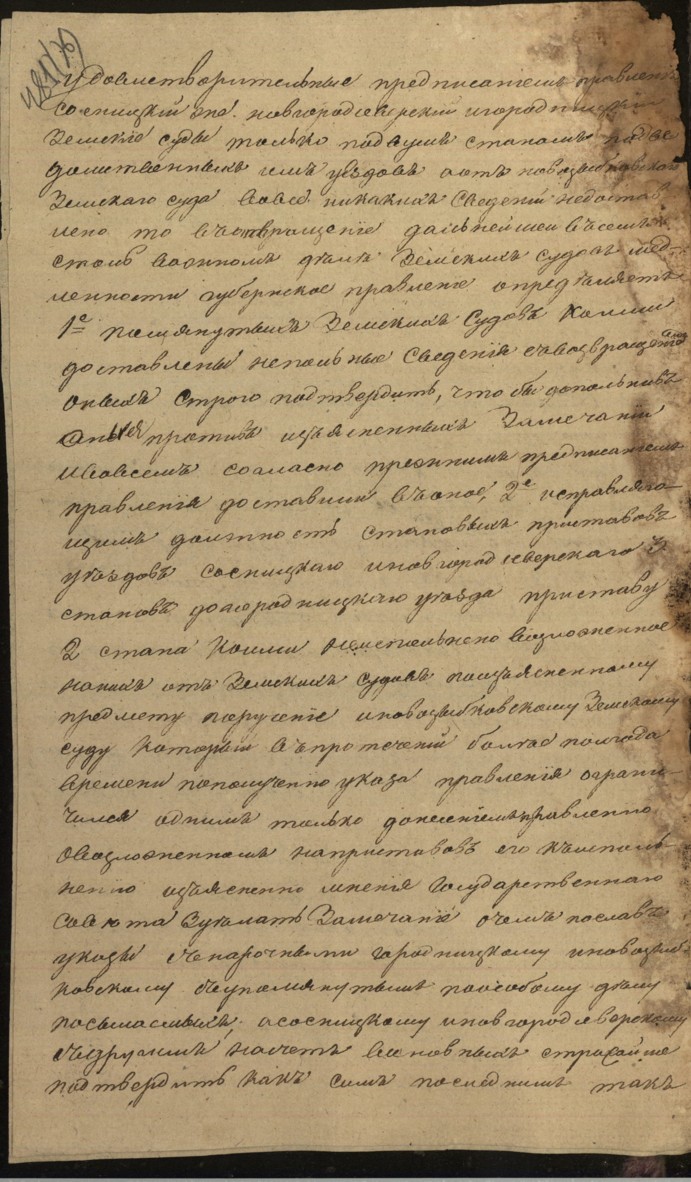 удовлетворительные предписаніемъ правленія
Сосницкій, Новгородсѣверскій и городницкій
Земскіе суды только по двумъ станамъ подвѣ
домственныхъ имъ уѣздовъ а отъ новозыбковскаго
Земскаго суда вовсе никакихъ сведеній недостав
лено то въ отвращеніе дальнейшей въ семъ
столь важномъ дѣлѣ Земскихъ судовъ мед-
ленности губернское правленіе опредѣляетъ
1е помянутыхъ Земскихъ Судовъ коими
доставлены неполные сведенія съ возвращеніемъ
оныхъ строго подтвердить, что бы дополнивъ
оныя противъ изъясненныхъ Замечаній
и вовсемъ согласно прежнимъ предписаніямъ
правленія доставили въ оное, 2е исправляю
щимъ должность становыхъ приставовъ
уѣздовъ сосницкаго и новгородсѣверскаго 3
становъ да городницкаго уѣзда приставу
2 стана коими неисполнено возложенное
на нихъ отъ Земскихъ судовъ по изъясненному
предмету порученіе и новозыбковскому Земскому
суду который въ протеченіи болѣе полгода
времени по полученіи указа правленія ограни-
чился однимъ только донесеніемъ правленію
о возложенномъ на приставовъ его къ исполъ-
ненію изъясненно мнѣнія Государственнаго
Совѣта Зделать Замечаніе о чемъ пославъ
указы съ нарочными городницкому и новозыб-
ковскому съ упомянутымъ по особому дѣлу
посылаемыхъ, а сосницкому и новгородсѣверскому
съ другимъ на счетъ виновныхъ строжайше
подтвердить какъ симъ последнимъ такъ